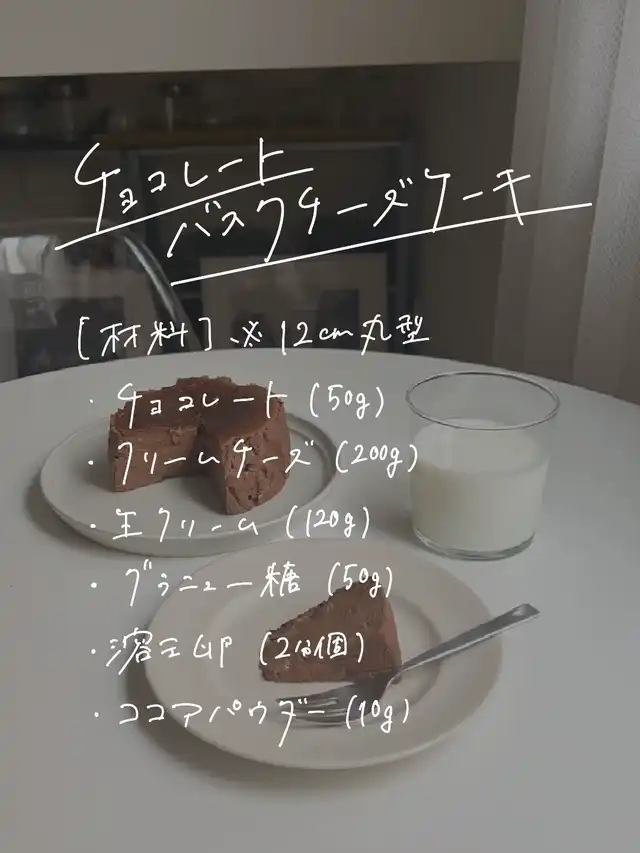 チョコレート
バスクチーズケーキ
[材料]※12cm丸型
・チョコレート(50g)
・クリームチーズ(200g)
・生クリーム(120g)
・グラニュー糖(50g)
・溶き卵(2分個)
・ココアパウダー(10g)